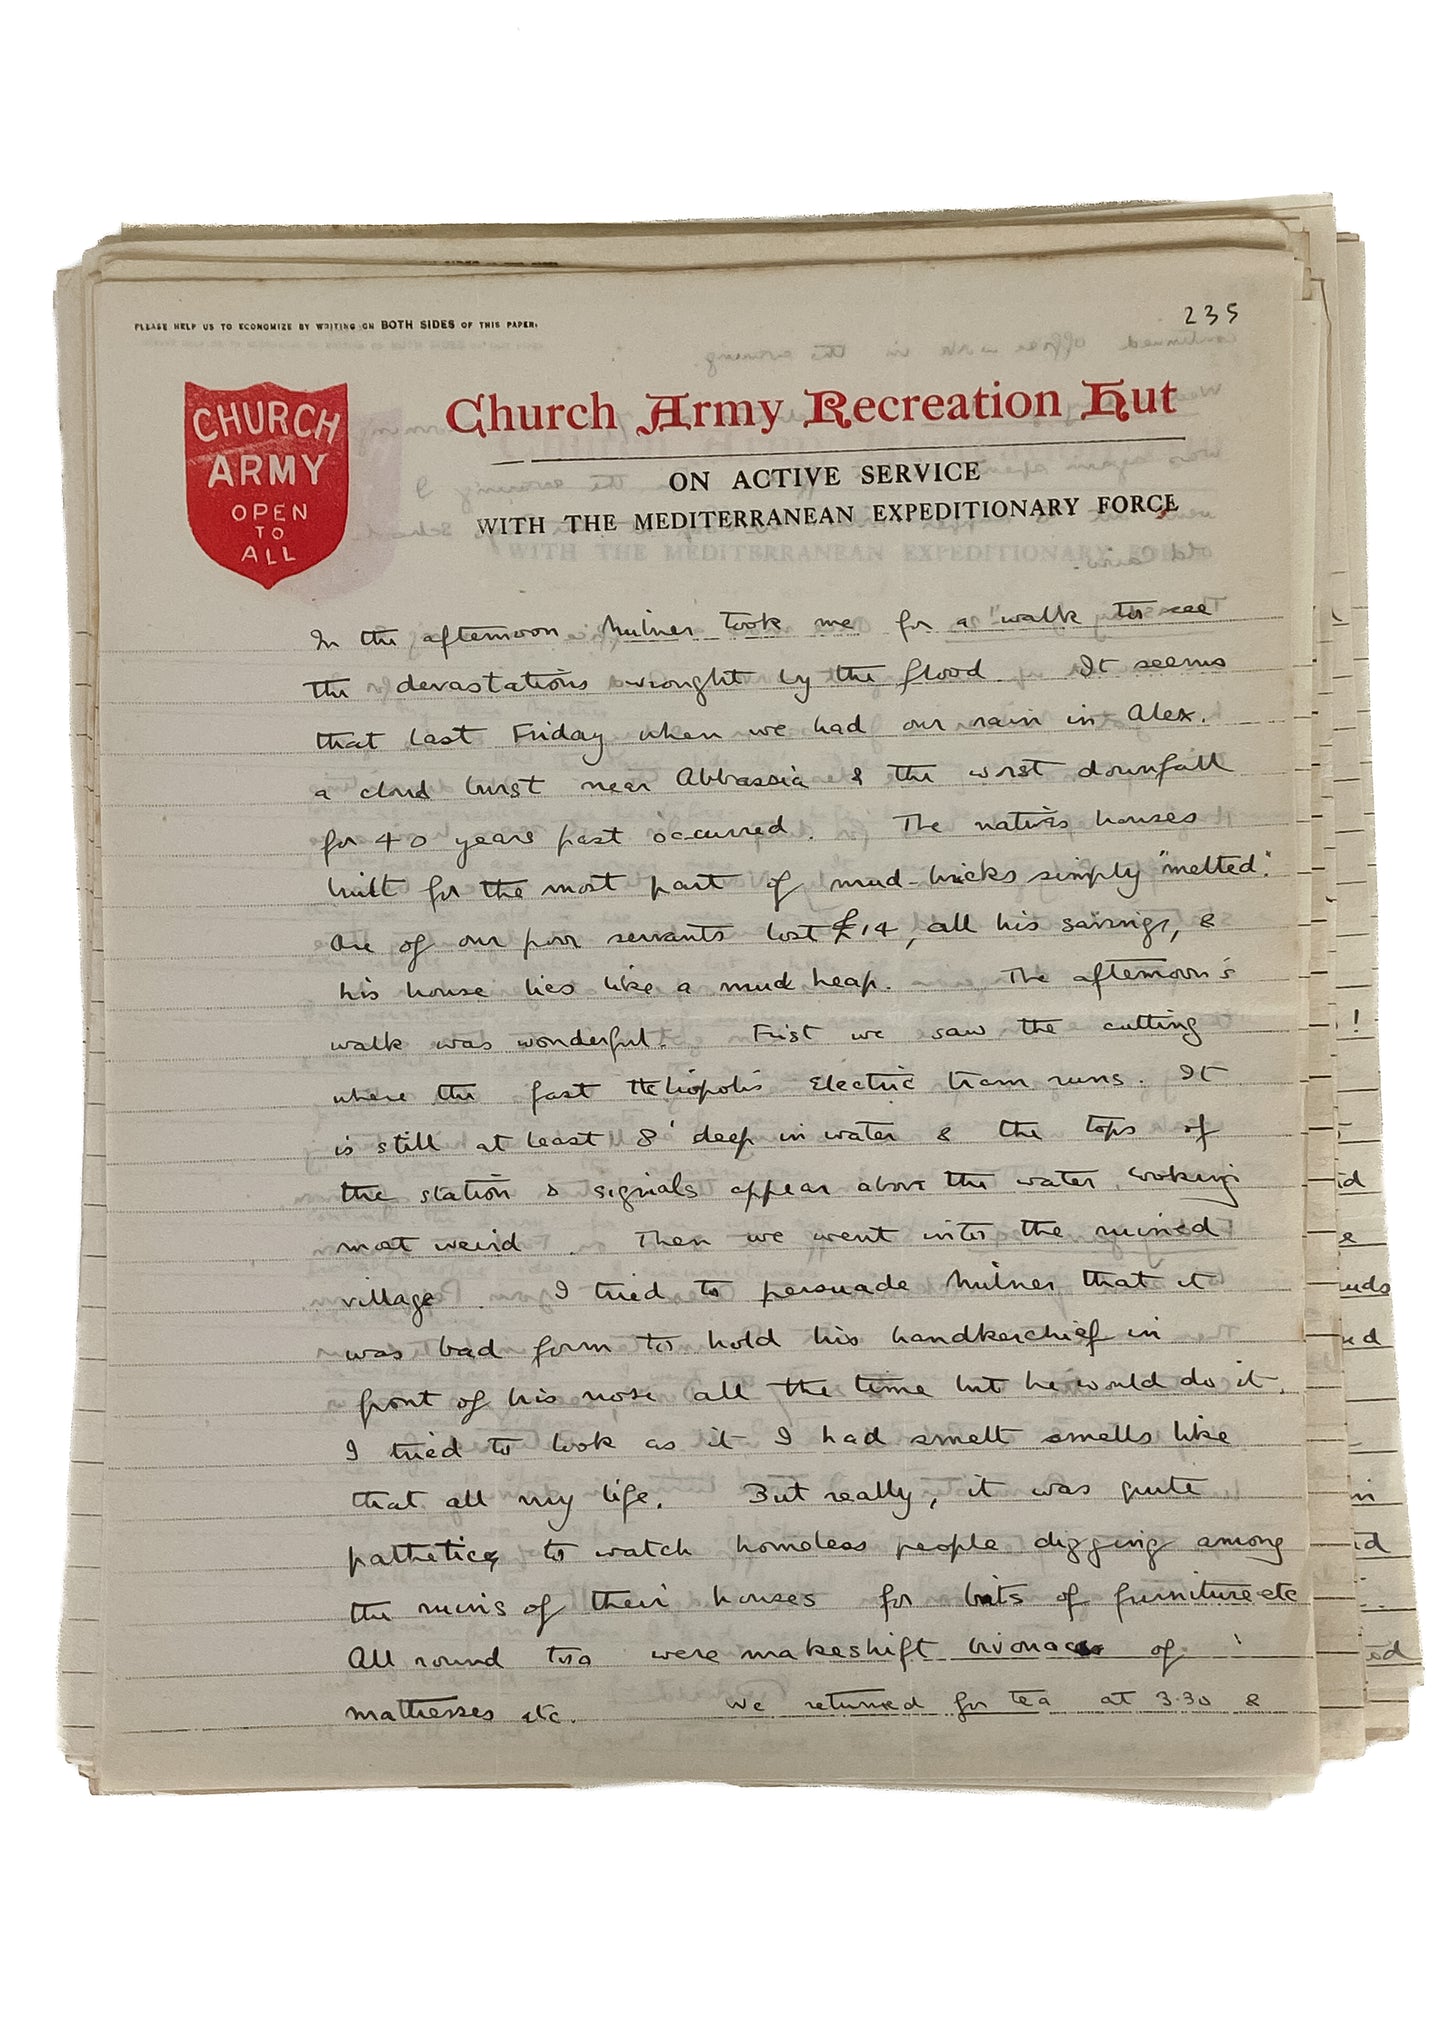 PLEASE HELP US TO ECONOMIZE BY WRITING ON BOTH SIDES OF THIS PAPER.
235
CHURCH
ARMY
OPEN
TO
ALL
Church Army Recreation Hut
ON ACTIVE SERVICE
WITH THE MEDITERRANEAN EXPEDITIONARY FORCE
In the afternoon Milner took me for a walk to see
the devastations wrought by the flood. It seems
that last Friday when we had our rain in Alex.
a cloud burst near Abbassia & the worst downfall
for 40 years past occurred. The natives houses
built for the most part of mud-bricks simply "melted".
One of our poor servants lost £14, all his savings, &
his house lies like a mud heap. The afternoon's
walk was wonderful. First we saw the cutting
where the fast Heliopolis Electric tram runs. It
is still at least 8' deep in water & the tops of
the station & signals appear above the water, looking
most weird. Then we went into the ruined
village. I tried to persuade Milner that it
was bad form to hold his handkerchief in
front of his nose all the time but he would do it.
I tried to look as if I had smelt smells like
that all my life. But really, it was quite
pathetic, to watch homeless people digging among
the ruins of their houses for bits of furniture etc
All round too were makeshift bivouacs of
mattresses etc. We returned for tea at 3.30 &